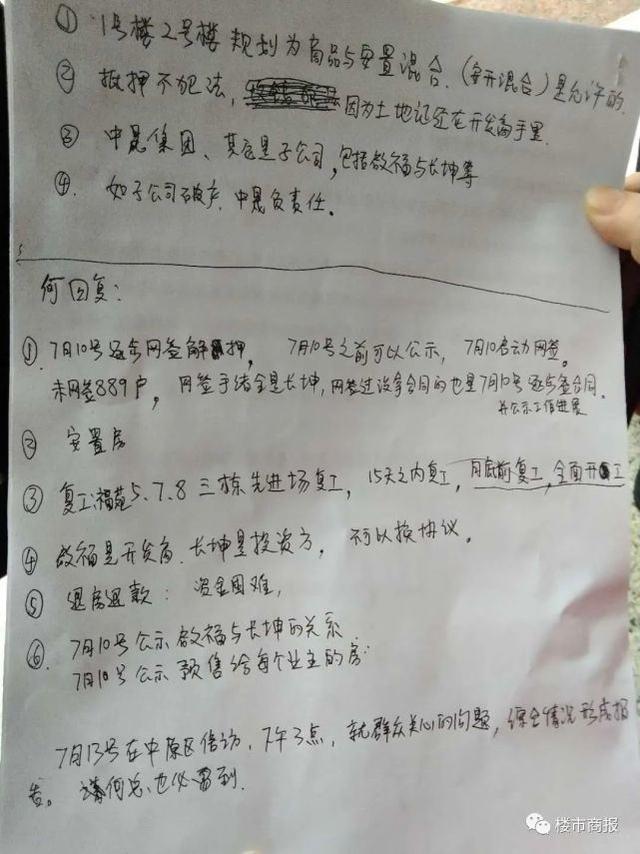 ① 1号楼2号楼规划为商品与安置混合.(安开混合)是允许的.
② 抵押不犯法, 因为土地证还在开发商手里.
③ 中晟集团、其它是子公司,包括啟福与长坤等
④. 如子公司破产.中晟负责任。
何回复:
① 7月10号逐步网签解押, 7月10号之前可以公示, 7月10启动网签。
未网签889户, 网签手续全是长坤,网签过没拿合同的也是7月10号逐步签合同.
并公示工作进展
② 安置房
③ 复工:福苑5.7.8三栋先进场复工, 15天之内复工, 月底前复工,全面开工
④ 啟福是开发商.长坤是投资方, 不可以换协议。
⑤ 退房退款: 资金困难,
⑥. 7月10号公示啟福与长坤的关系.
7月10号公示预售给每个业主的房.
7月13号在中原区信访.下午3点, 就群众关心的问题,综合情况形成报
告。 何总也必需到.
楼市商报